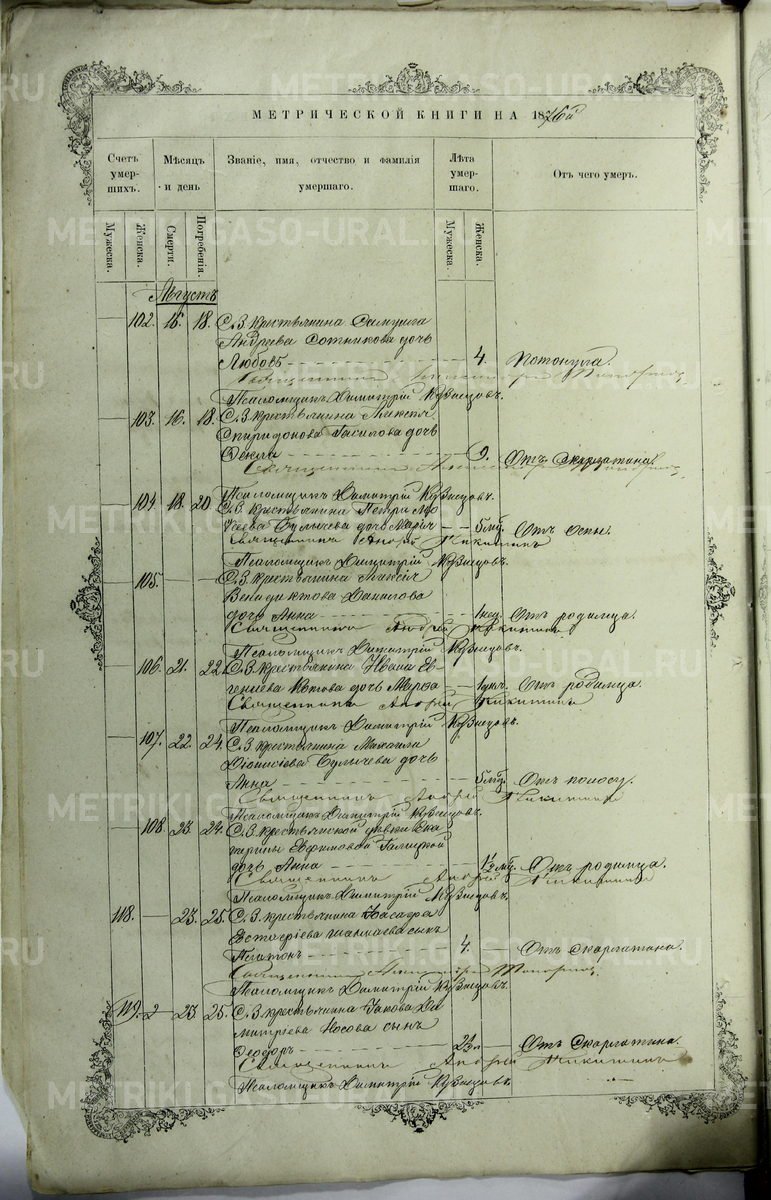 МЕТРИЧЕСКОЙ КНИГИ НА 1876й
Счетъ умершихъ.
Мѣсяцъ и день
Званіе, имя, отчество и фамилія умершаго.
Лѣта умершаго.
Отъ чего умеръ.
Мужеска.
Женска.
Смерти.
Погребенія.
Мужеска.
Женска.
Августъ
102. 16. 18. С. З. крестьянина
Андреева Сотникова дочь
Любовь 4. Потонула.
Псаломщикъ Димитрій Кузнецовъ.
103. 16. 18. С. З. крестьянина Алексѣя
Спиридонова дочь
Ѳекла 9. Отъ Скарлатина.
Псаломщикъ Димитрій Кузнецовъ.
104. 18. 20. С. З. крестьянина Петра Мо
сеева Булычева дочь Марія 5 мѣ. Отъ Оспы.
Священникъ Андрей Никитинъ
Псаломщикъ Димитрій Кузнецовъ.
105. — — С. З. крестьянина
Венедиктова Данилова
дочь Анна 1 нед. Отъ родимца.
Священникъ Андрей Никитинъ
Псаломщикъ Димитрій Кузнецовъ.
106. 21. 22. С. З. крестьянина Ивана Ев
геніева дочь Марѳа Отъ родимца.
Священникъ Андрей Никитинъ
Псаломщикъ Димитрій Кузнецовъ.
107. 22. 24. С. З. крестьянина Михаила
Діонисіева Булычева дочь
Анна 5 мѣ. Отъ поносу.
Священникъ Андрей Никитинъ
Псаломщикъ Димитрій Кузнецовъ.
108. 23. 24. С. З. крестьянской дѣвки Ека
терины Евфимовой Галицкой
дочь Анна 1½ мѣ. Отъ родимца.
Священникъ Андрей Никитинъ
Псаломщикъ Димитрій Кузнецовъ.
118. — 23. 25. С. З. крестьянина
сынъ
Платонъ 4. Отъ Скарлатина.
Псаломщикъ Димитрій Кузнецовъ.
119. 23. 25. С. З. крестьянина Іакова Ди
митріева Носова сынъ
Ѳеодоръ 2½ Отъ Скарлатина.
Священникъ Андрей Никитинъ
Псаломщикъ Димитрій Кузнецовъ.
METRIKI.GASO-URAL.RU